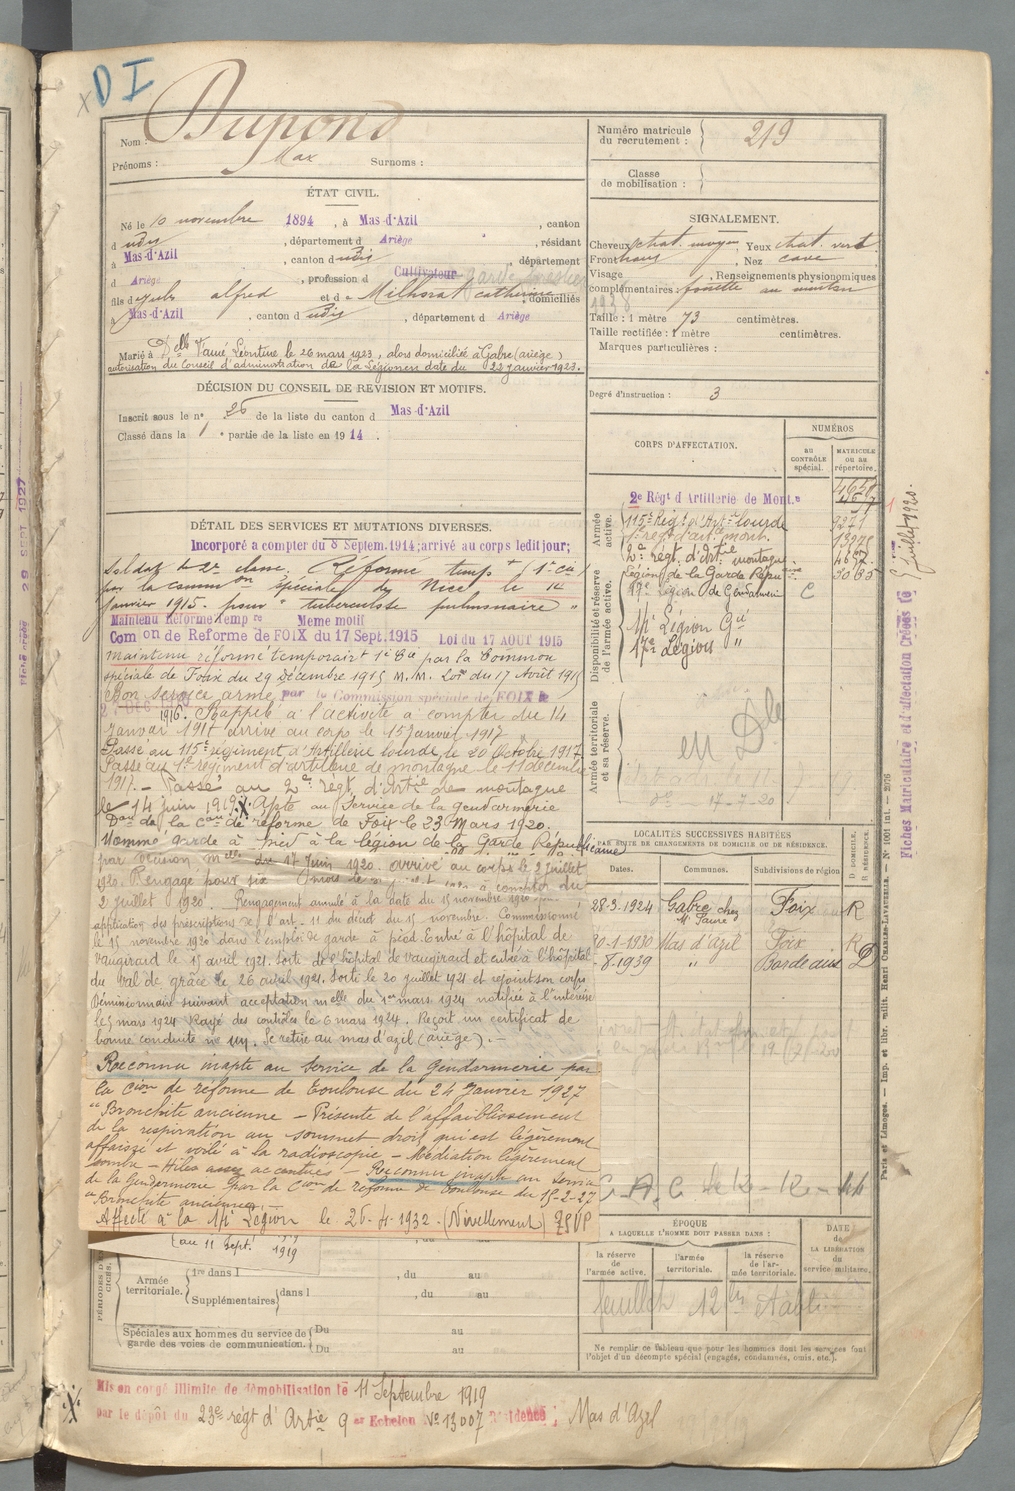 D I
Nom : Dupond
Prénoms : Max Surnoms :
Numéro matricule
du recrutement : 219
Classe
de mobilisation :
ÉTAT CIVIL.
Né le 10 novembre 1894, à Mas-d'Azil, canton
d udis, département d Ariège, résidant
à Mas-d'Azil, canton d udis, département
d Ariège, profession de Cultivateur garde forestier
fils de Jules alfred et de Milhorat catherine, domiciliés
à Mas-d'Azil, canton d udis, département d Ariège
Marié à Delle Fauré Léontine le 26 mars 1923, alors domicilié à Gabre (ariège)
autorisation du Conseil d'administration de la Légion en date du 22 Janvier 1923.
SIGNALEMENT.
Cheveux chat. moyen, Yeux chat. vert
Front haut, Nez cave
Visage , Renseignements physionomiques
complémentaires : fossette au menton
1928
Taille : 1 mètre 73 centimètres.
Taille rectifiée : 1 mètre centimètres.
Marques particulières :
Degré d'instruction : 3
DÉCISION DU CONSEIL DE REVISION ET MOTIFS.
Inscrit sous le n° 26 de la liste du canton d Mas-d'Azil
Classé dans la 1e partie de la liste en 1914.
CORPS D'AFFECTATION.
NUMÉROS
AU CONTRÔLE spécial.
MATRICULE ou au répertoire.
Armée active.
2e Régt d'Artillerie de Mont.e
115e Régt d'Art. lourde 9271
1er régt d'art. mont.
2e régt. d'Artie montagne 4657
Disponibilité et réserve de l'armée active.
Légion de la Garde Républicaine
17e Légion de Gendarmerie C
17e Légion Gie
17e Légion "
Armée territoriale et sa réserve.
en Dle
17-7-20
DÉTAIL DES SERVICES ET MUTATIONS DIVERSES.
Incorporé à compter du 8 Septem. 1914; arrivé au corps ledit jour;
soldat de 2e classe. Réformé tempt (1e cie)
par la common spéciale de Nice le 12
janvier 1915. pour "tuberculose pulmonaire"
Maintenu Réformé Temp re Meme motif
Com on de Reforme de FOIX du 17 Sept. 1915 Loi du 17 AOUT 1915
maintenu réformé temporairt 1e Cie par la Common
spéciale de Foix du 29 décembre 1915 M. M. Loi du 17 Août 1915
Bon service armé par la Commission spéciale de FOIX le
1916. Rappelé à l'activité à compter du 14
Janvier 1917 arrivé au corps le 15 Janvier 1917
Passé au 115e régiment d'Artillerie lourde, le 20 Octobre 1917
Passé au 1er régiment d'artillerie de montagne le 11 décembre
1917. - Passé au 2e régt d'Artie de montagne
le 14 juin 1919. X. Apte au Service de la gendarmerie
Don de la Con de réforme de Foix le 23 Mars 1920.
Nommé Garde à pied à la légion de la Garde Républicaine
par décision melle du 17 Juin 1920. arrivé au corps le 2 juillet
1920. Rengagé pour six mois à compter du
2 juillet 1920. Rengagement annulé à la date du 15 novembre 1920 pour
application des prescriptions de l'art. 11 du décret du 15 novembre. Commissionné
le 15 novembre 1920 dans l'emploi de garde à pied. Entré à l'hôpital de
Vaugirard le 15 avril 1921. Sorti de l'hôpital de Vaugirard et entré à l'hôpital
du val de grâce le 26 avril 1921. Sorti le 20 juillet 1921 et rejoint son corps
Démissionnaire suivant acceptation melle du 1er mars 1924 notifiée à l'intéressé
le 5 mars 1924 Rayé des contrôles le 6 mars 1924. Reçoit un certificat de
bonne conduite. Se retire au mas d'azil (ariège). -
Reconnu inapte au service de la Gendarmerie par
la Cion de réforme de Toulouse du 24 Janvier 1927
"Bronchite ancienne - Présente de l'affaiblissement
de la respiration au sommet droit qui est légèrement
affaissé et voilé à la radioscopie - Médiation légèrement
sombre - Hiles assez accentués - Reconnu inapte au service
de la Gendarmerie par la Cion de réforme de Toulouse du 15-2-27
"Bronchite ancienne"
Affecté à la 17e Légion le 26-4-1932. (Nivellement) TSVP
au 11 Sept. 1919
LOCALITÉS SUCCESSIVES HABITÉES
PAR SUITE DE CHANGEMENTS DE DOMICILE OU DE RÉSIDENCE.
Dates. Communes. Subdivisions de région D. DOMICILE. R. RÉSIDENCE.
28-3-1924 Gabre chez Mr Fauré Foix R
20-1-1930 Mas d'azil Foix R
-8-1939 " Bordeaux D
C.A.C.
ÉPOQUE
A LAQUELLE L'HOMME DOIT PASSER DANS :
la réserve de l'armée active.
l'armée territoriale.
la réserve de l'armée territoriale.
DATE de LA LIBÉRATION du service militaire.
feuillet 12 bis établi
Ne remplir ce tableau que pour les hommes dont les services font
l'objet d'un décompte spécial (engagés, condamnés, omis, etc.).
Armée territoriale.
1re dans l , du au
Supplémentaires dans l , du au
Spéciales aux hommes du service de
garde des voies de communication.
Du au
Du au
Mis en congé illimité de démobilisation le 11 Septembre 1919
X. par le dépôt du 23e régt d'Artie 9 er Echelon No 13007 Résidence ; Mas d'Azil
Fiches Matriculaire et d'affectation Créées le 5 juillet 1920.
Paris et Limoges. — Imp. et libr. milit. Henri CHARLES-LAVAUZELLE. — N° 1061 int. — 2076
Fiche créée 29 SEPT 1927